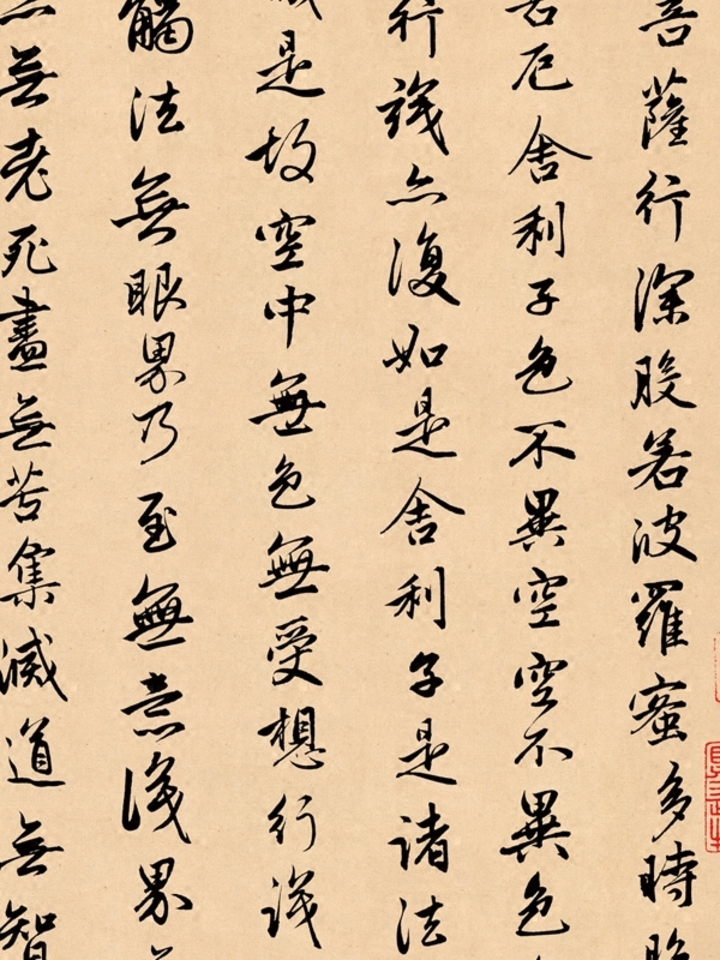 菩薩行深般若波羅蜜多時照
苦厄舍利子色不異空空不異色
行識亦復如是舍利子是諸法
滅是故空中無色無受想行識
觸法無眼界乃至無意識界
無老死盡無苦集滅道無智